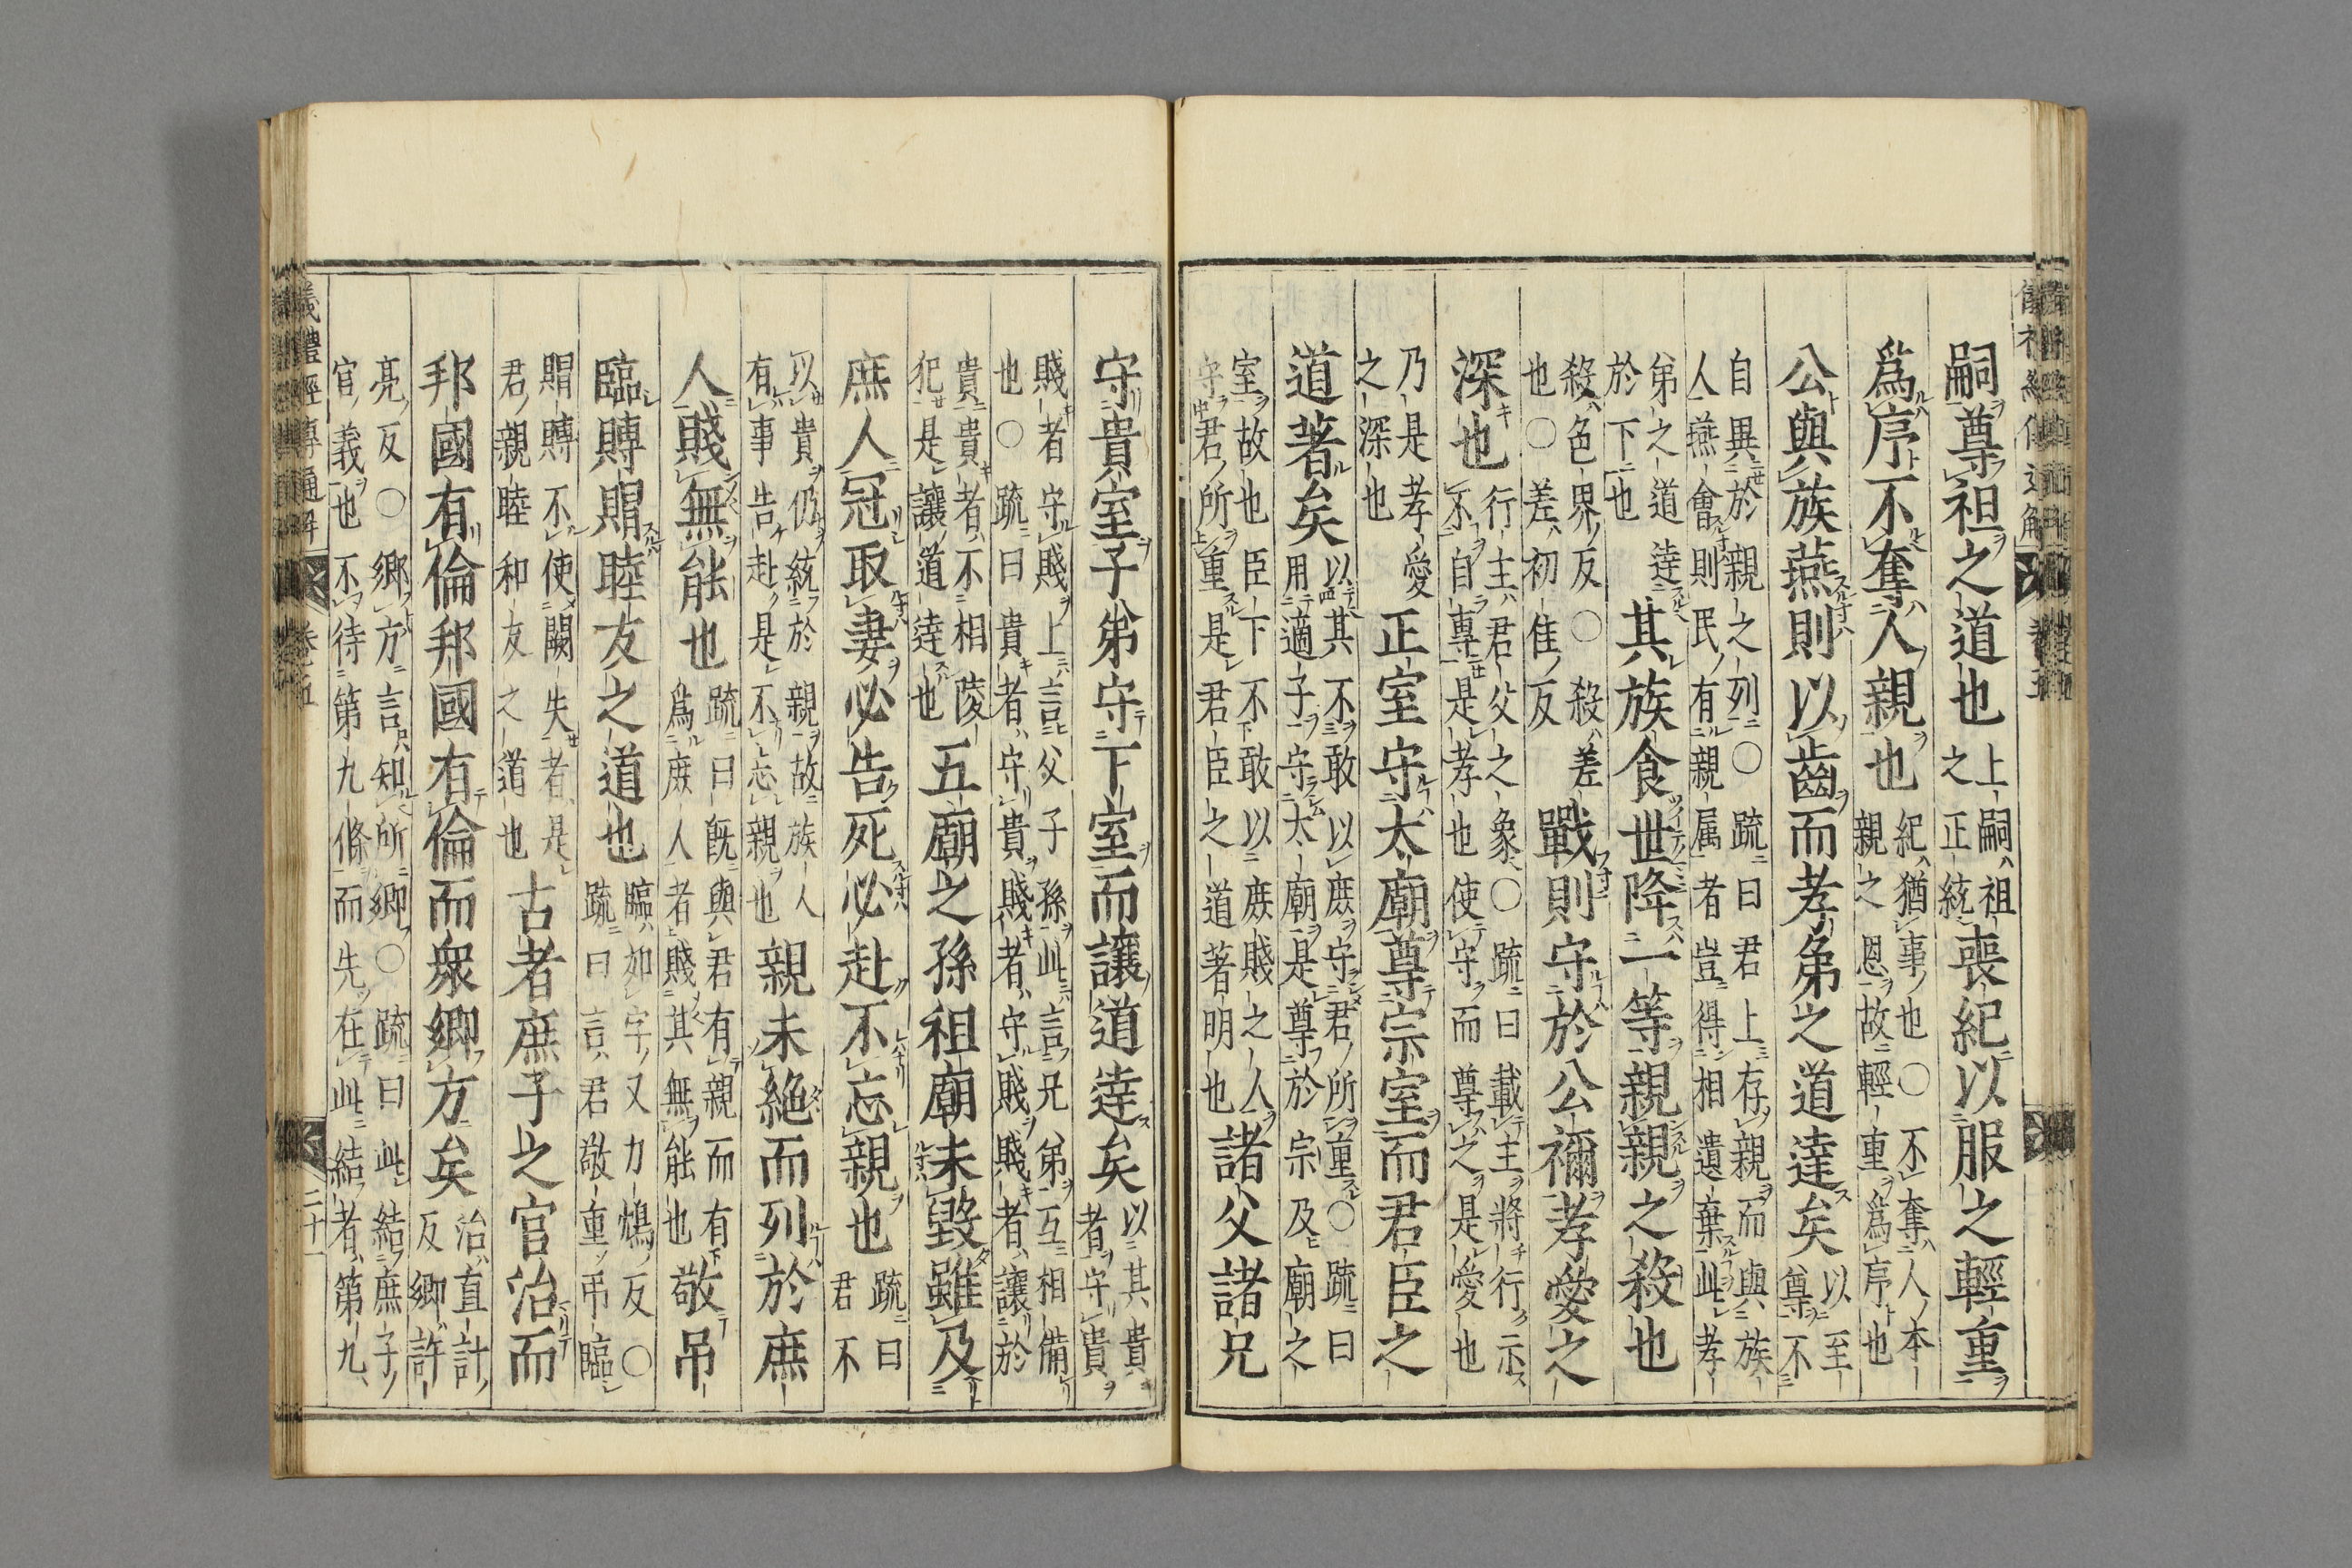 嗣尊祖之道也上嗣祖
之正統
喪紀以服之輕重
爲序不奪人親也紀猶事也○不奪人本
親之恩故輕重爲序也
公與族燕則以齒而孝弟之道達矣以至
尊不
自異於親之列○疏曰君上存親而與族
人燕會則民有親属者豈得相遺棄此孝
弟之道達
於下也
其族食世降一等親親之殺也
殺色界反○殺差
也○差初隹反
戰則守於公禰孝愛之
深也行主君父之象○疏曰載主將行示
不自專是孝也使守而尊之是愛也
乃是孝愛
之深也
正室守太廟尊宗室而君臣之
道著矣以其不敢以庶守君所重○疏曰
用適子守太廟是尊於宗及廟之
室故也臣下不敢以庶賤之人
守君所重是君臣之道著明也
諸父諸兄
守貴室子弟守下室而讓道達矣以其貴
者守貴
賤者守賤上言父子孫此言兄弟互相備
也○疏曰貴者守貴賤者守賤賤者讓於
貴貴者不相陵
犯是讓道達也
五廟之孫祖廟未毀雖及
庶人冠取妻必告死必赴不忘親也疏曰
君不
以貴仍統於親故族人
有事告赴是不忘親也
親未絶而列於庶
人賤無能也疏曰既與君有親而有
爲庶人者賤其無能也
敬吊
臨賻賵睦友之道也臨如字又力鴆反○
疏曰言君敬重弔臨
賵賻不使闕失者是
君親睦和友之道也
古者庶子之官治而
邦國有倫邦國有倫而衆鄉方矣治直計
反鄉許
亮反○鄉方言知所鄉○疏曰此結庶子
官義也不待第九條而先在此結者第九
儀禮經傳通解 卷五 二十一